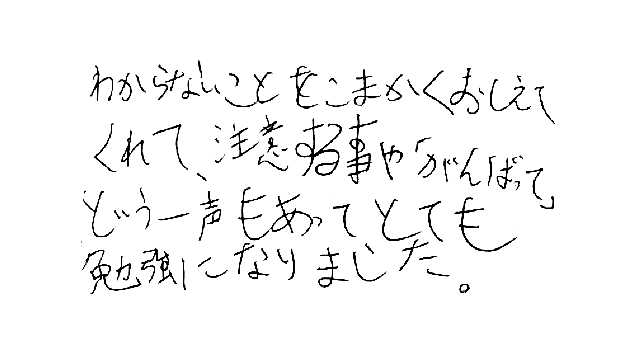 わからないことをこまかくおしえて
くれて、注意する事や「がんばって」
という一声もあってとても
勉強になりました。